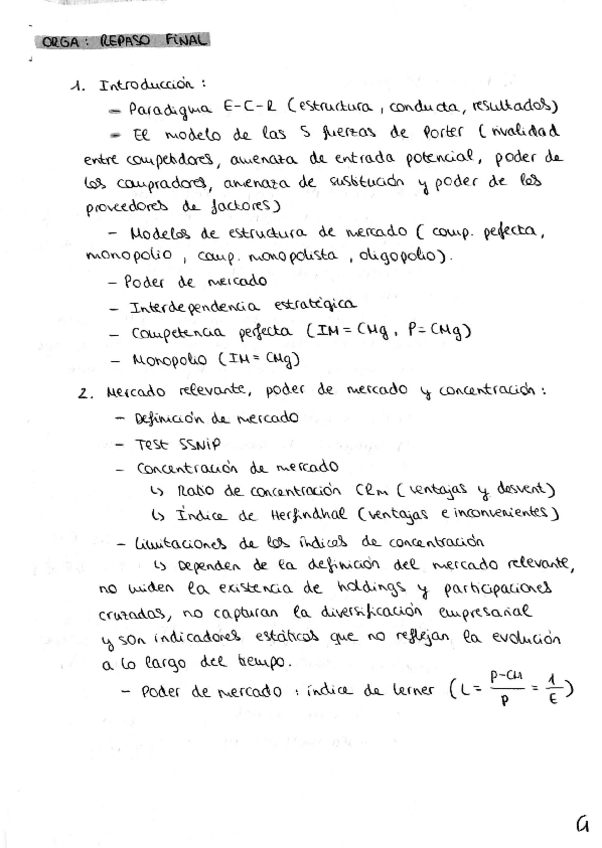 ORGA: REPASO FINAL
1. Introducción:
- Paradigma E-C-R (estructura, conducta, resultados)
- El modelo de las 5 fuerzas de Porter (rivalidad
entre competidores, amenaza de entrada potencial, poder de
los compradores, amenaza de sustitución y poder de los
proveedores de factores)
- Modelos de estructura de mercado (comp. perfecta,
monopolio, comp. monopolista, oligopolio).
- Poder de mercado
- Interdependencia estratégica
- Competencia perfecta (IM = CMg, P = CMg)
- Monopolio (IM = CMg)
2. Mercado relevante, poder de mercado y concentración:
- Definición de mercado
- Test SSNIP
- Concentración de mercado
↳ Ratio de concentración CRm (ventajas y desvent)
↳ Índice de Herfindhal (ventajas e inconvenientes)
- Limitaciones de los índices de concentración
↳ Dependen de la definición del mercado relevante,
no miden la existencia de holdings y participaciones
cruzadas, no capturan la diversificación empresarial
y son indicadores estáticos que no reflejan la evolución
a lo largo del tiempo.
- Poder de mercado: índice de lerner (L = P-CM/P = 1/E)